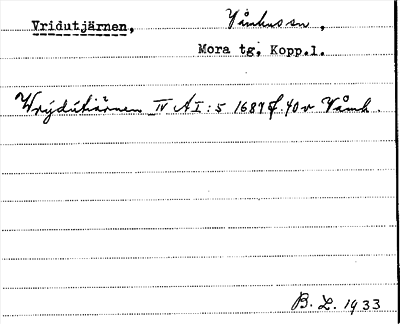 Vridutjärnen, Våmhus sn,
Mora tg, Kopp.l.
Wrijdutiärnen IV A I:5 1687 f. 40 v Våmh.
B. L. 1933